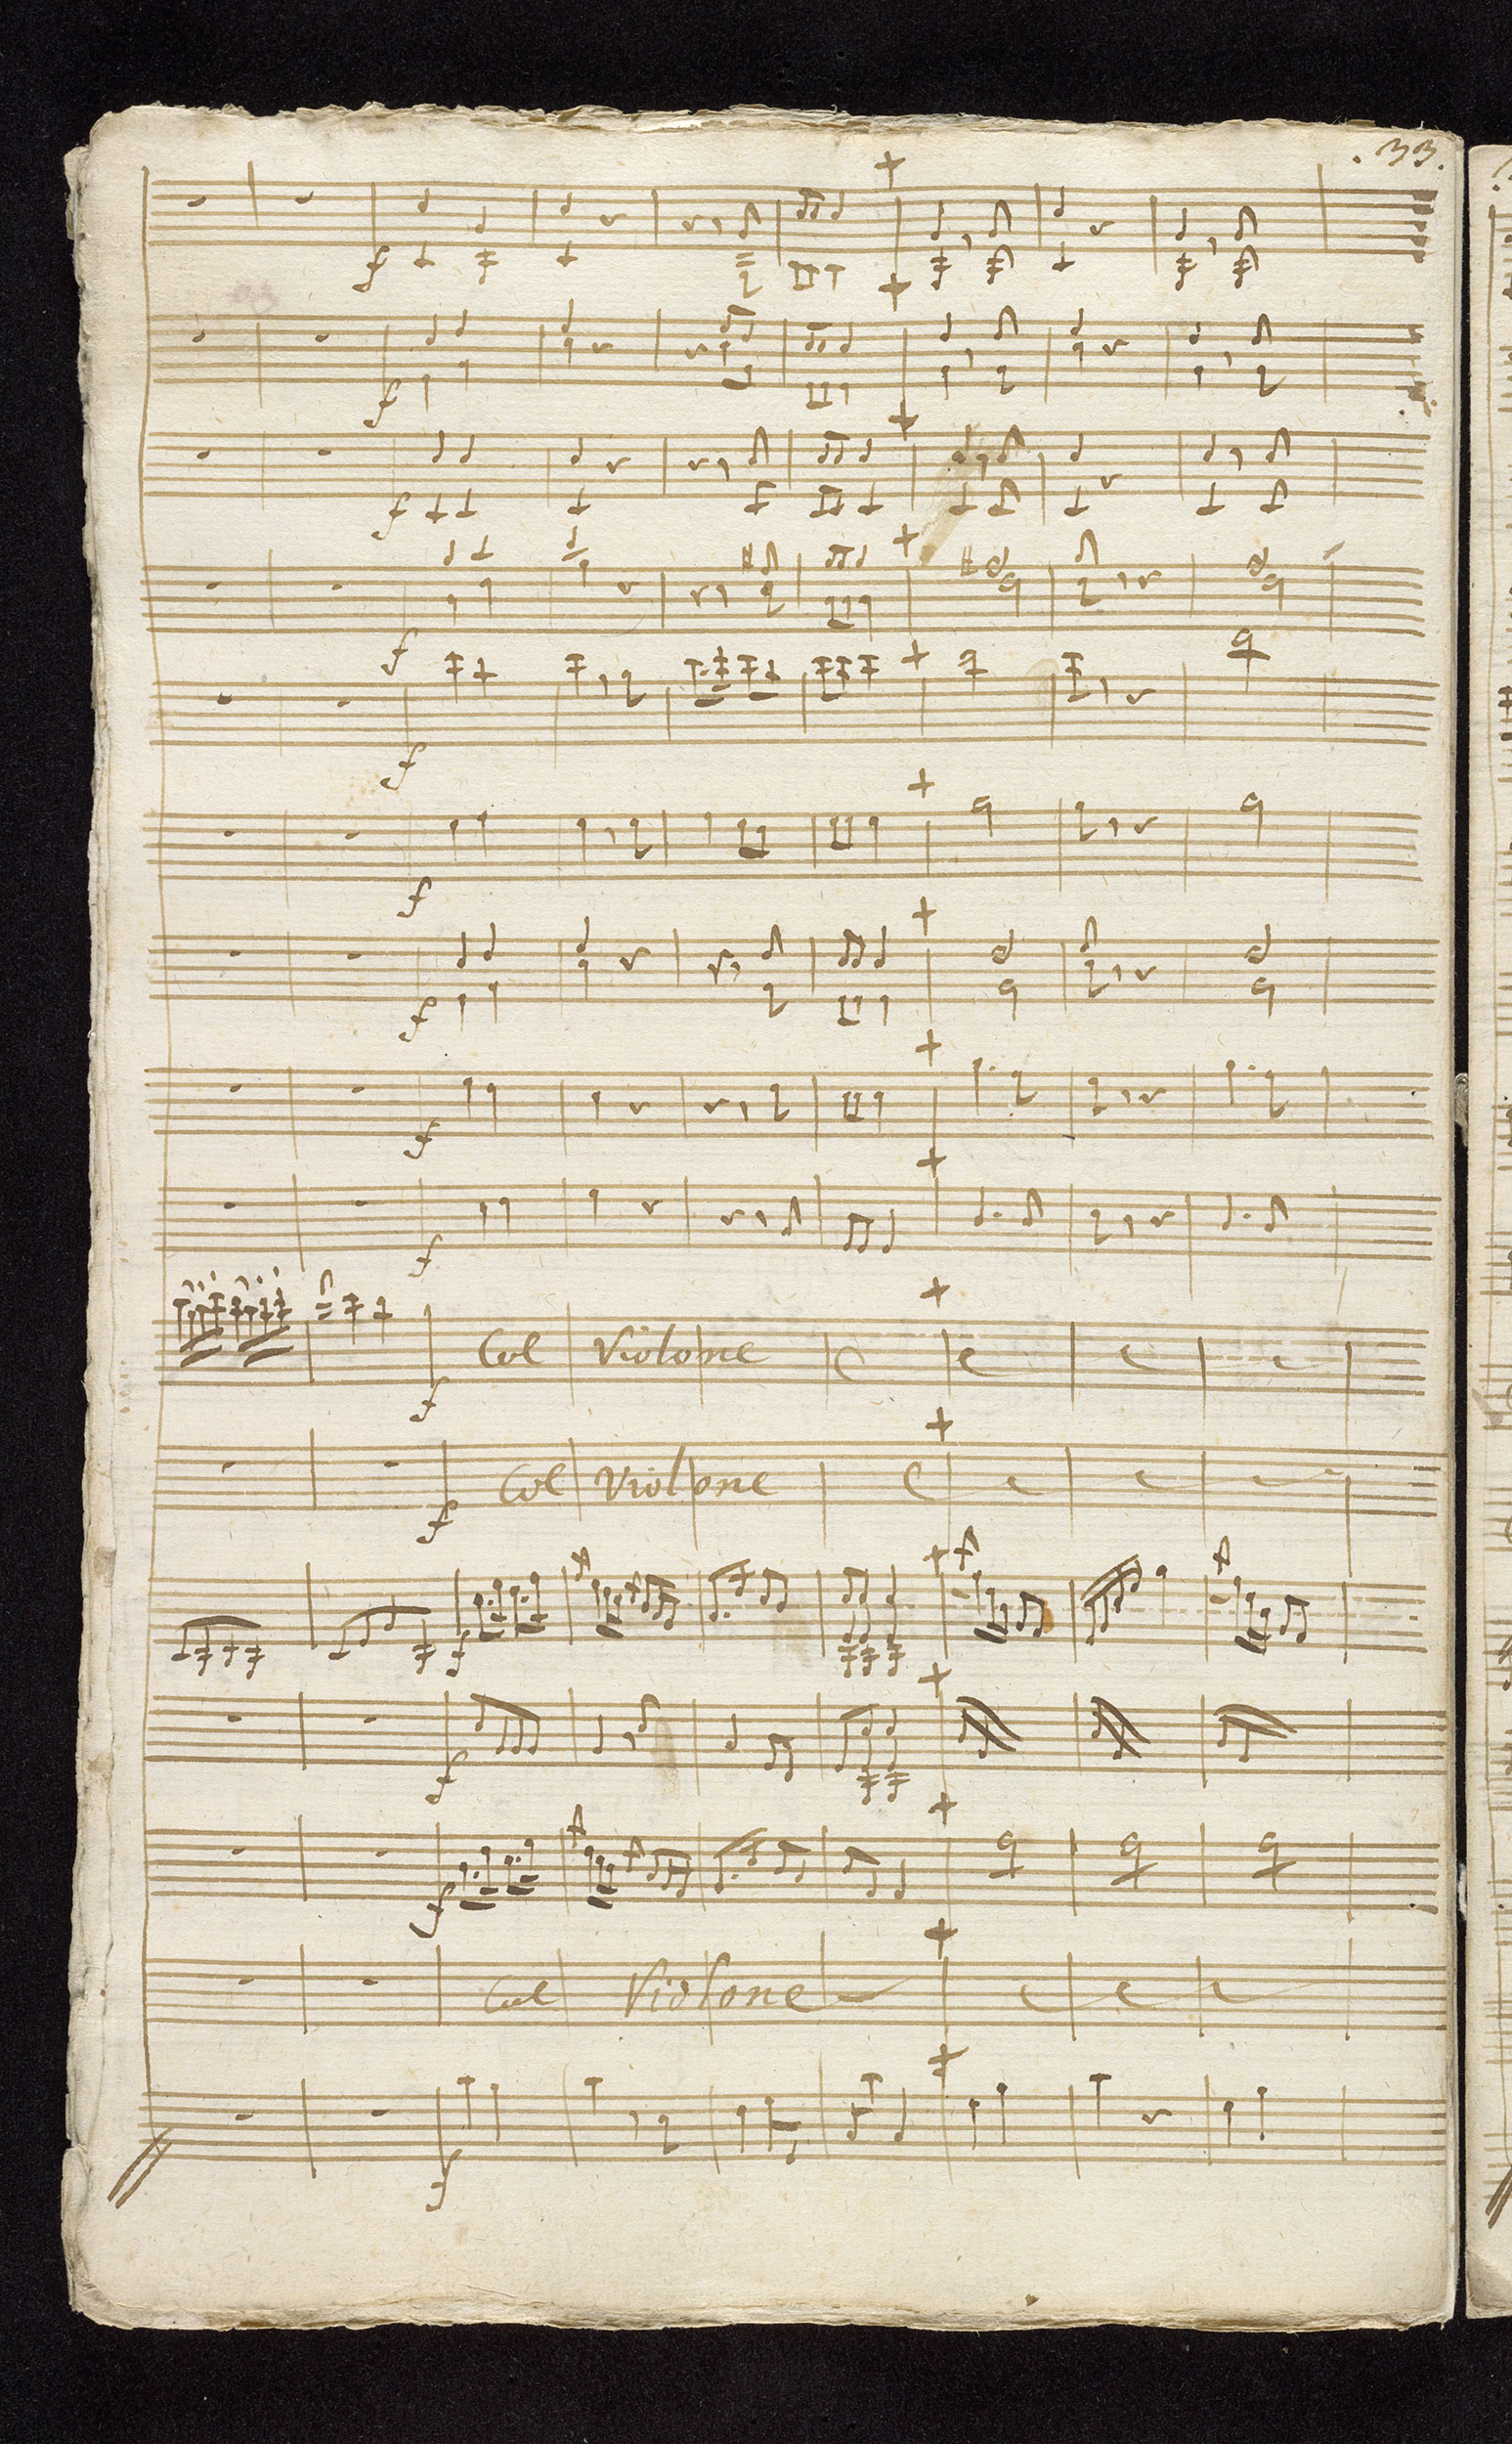 . 33.
f
f
f
f
f
f
f
f
f
f
Col Violone
f
Col Violone
f
f
f
f
Col Violone
f